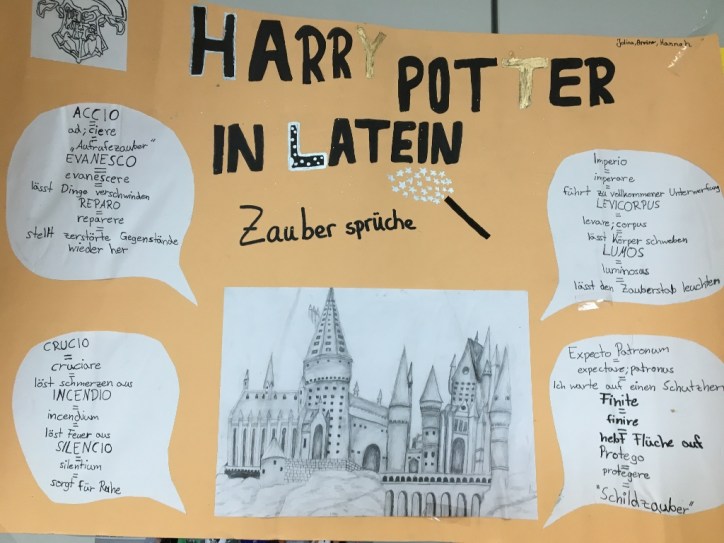 HARRY
POTTER
IN LATEIN
Zaubersprüche
ACCIO
=
ad; ciere
=
"Aufrufezauber"
EVANESCO
=
evanescere
=
lässt Dinge verschwinden
REPARO
=
reparere
=
stellt zerstörte Gegenstände
wieder her
CRUCIO
=
cruciare
=
löst schmerzen aus
INCENDIO
=
incendium
=
löst Feuer aus
SILENCIO
=
silentium
=
sorgt für Ruhe
Imperio
=
imperare
=
führt zu vollkommener Unterwerfung
LEVICORPUS
=
levare; corpus
=
lässt Körper schweben
LUMOS
=
luminosas
=
lässt den Zauberstab leuchten
Expecto Patronum
=
expectare; patronus
=
Ich warte auf einen Schutzherr
Finite
=
finire
=
hebt Flüche auf
Protego
=
protegere
=
"Schildzauber"